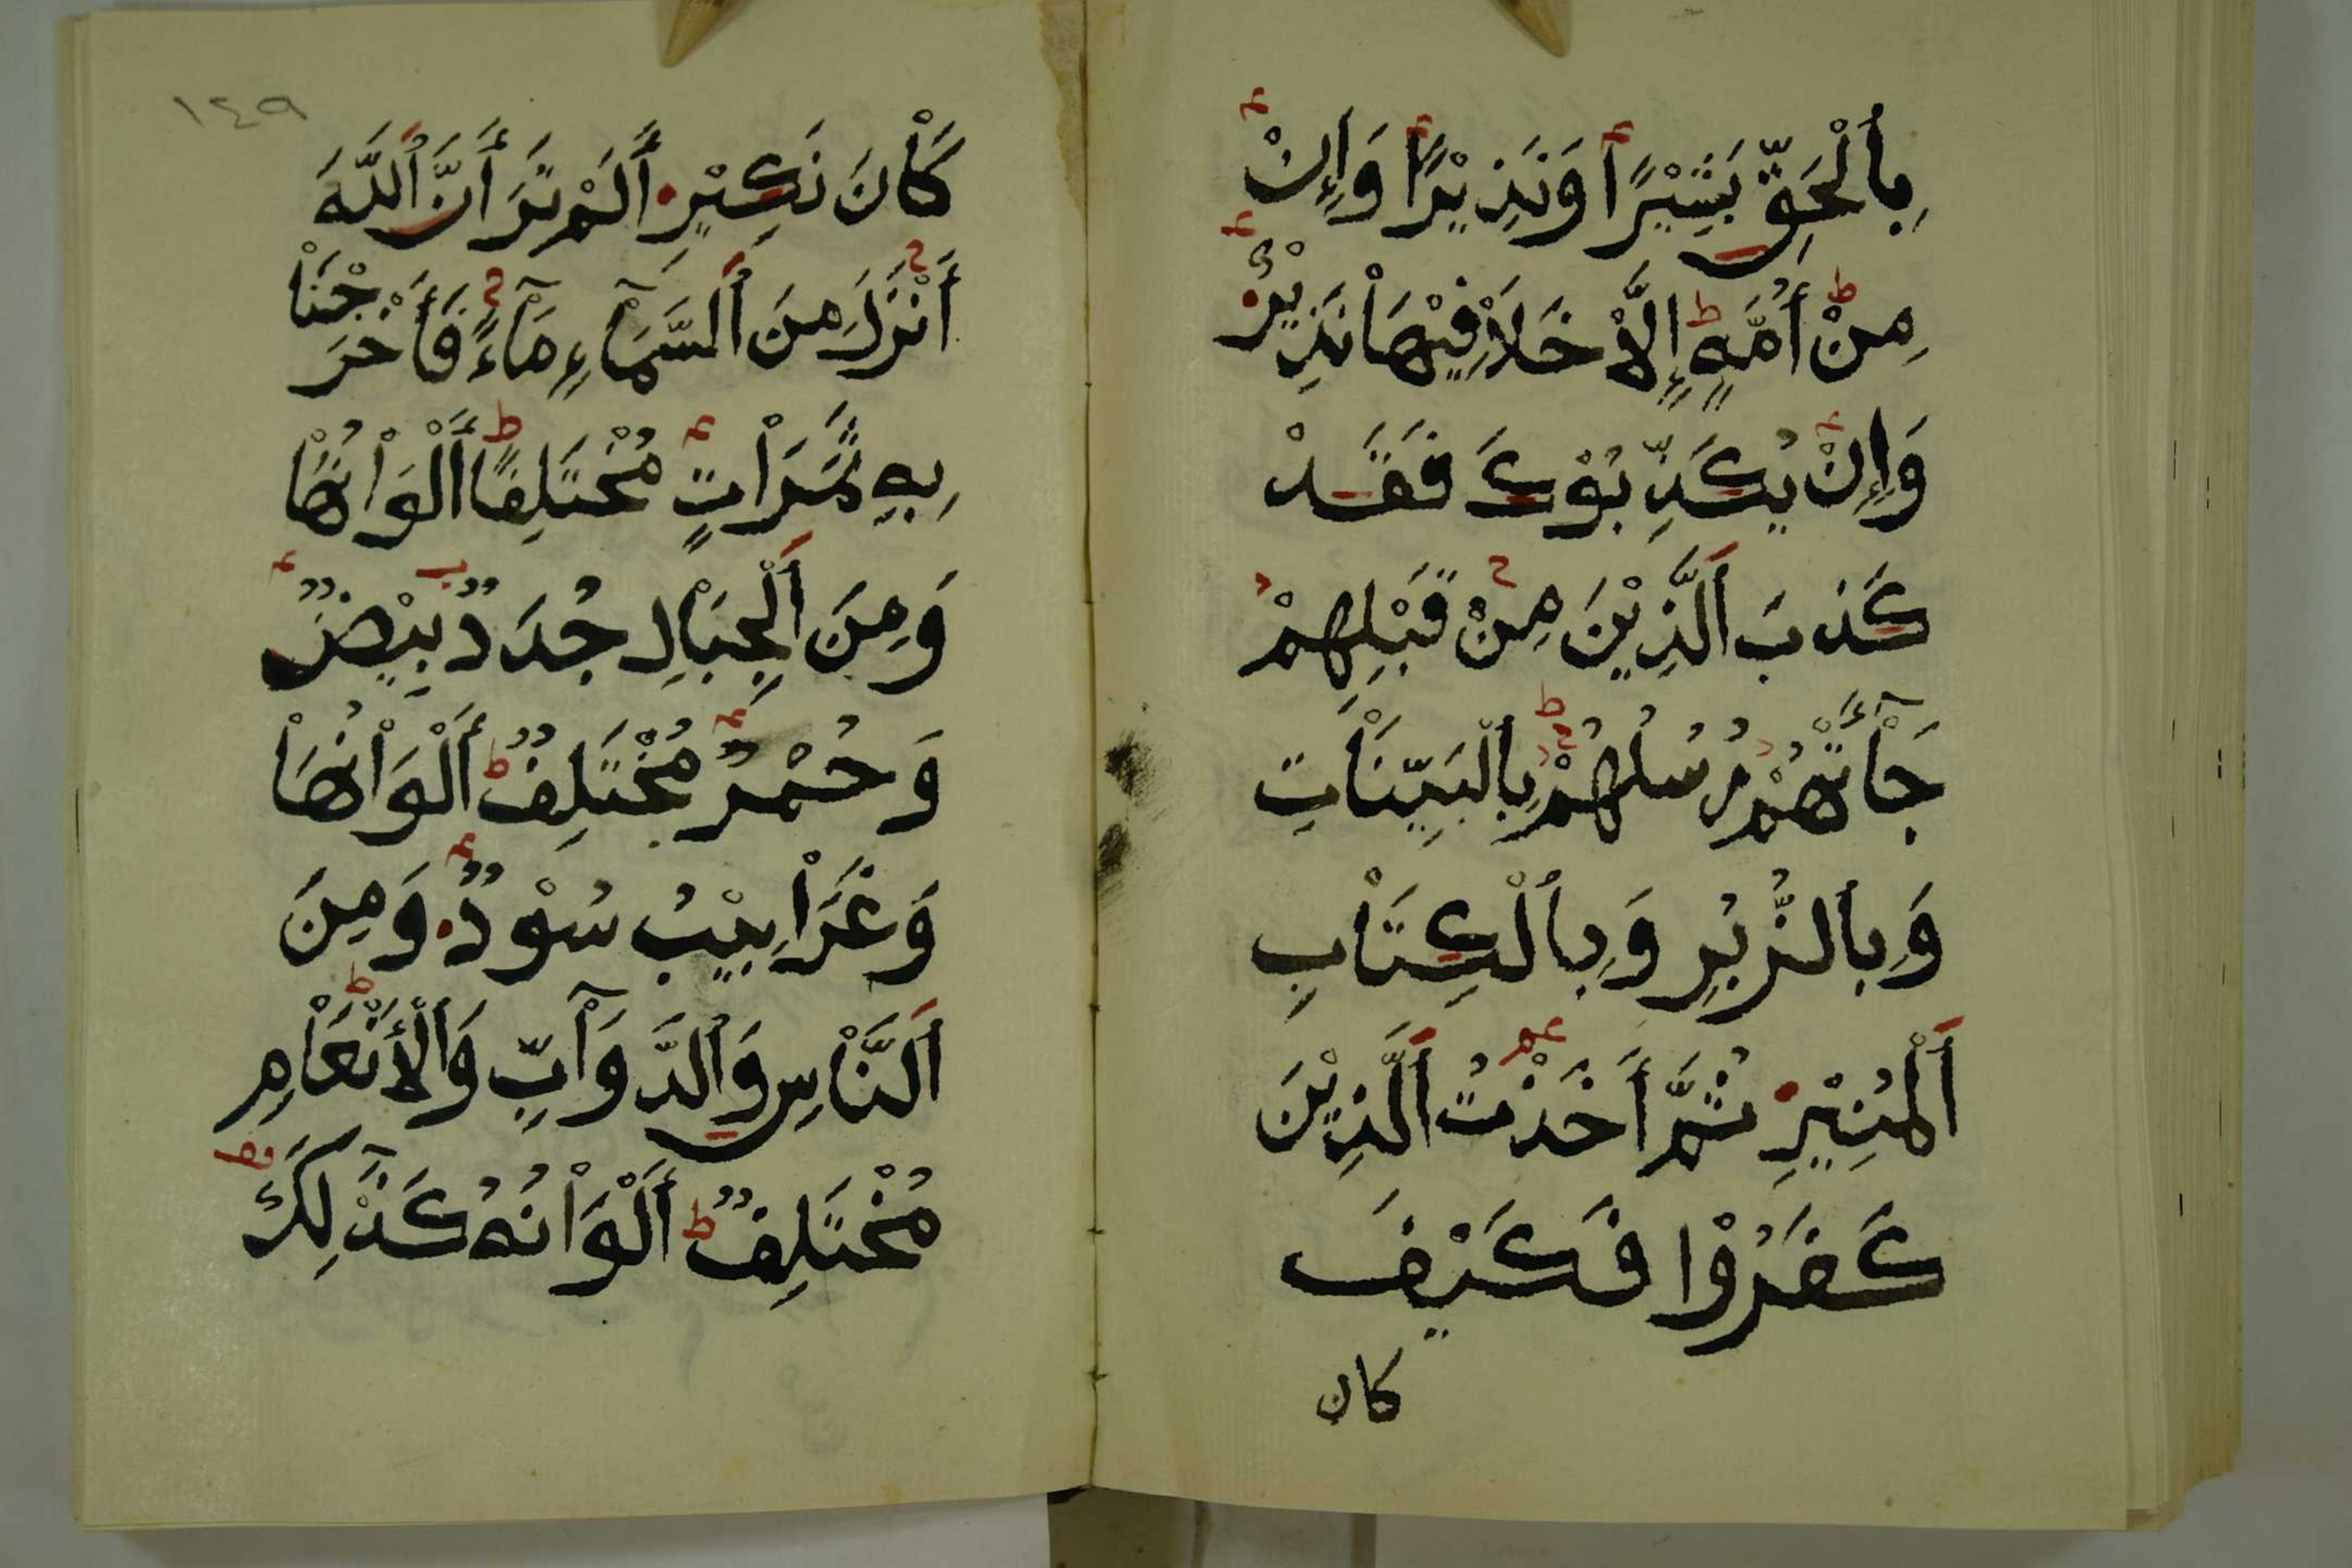 بِاَلْحَقِّ بَشِيْرًا وَنَذِيْرًا وَإِنْ
مِنْ أُمَّةٍ إِلَّاْ خَلَاْ فِيْهَاْ نَذِيْرٌ
وَإِنْ يُكَذِّبُوْكَ فَقَدْ
كَذَبَ اَلَّذِيْنَ مِنْ قَبْلِهِمْ
جَآْءَتْهُمْ رُسُلُهُمْ بِالْبَيِّنَاْتِ
وَبِاُلزُّبُرِ وَبِاُلْكِتَاْبِ
اَلْمُنِيْرِ ثُمَّ أَخَذْتُ اَلَّذِيْنَ
كَفَرُوْا فَكَيْفَ
كان
١٤٩
كَاْنَ نَكِيْرِ أَلَمْ تَرَ أَنَّ اُللَّهَ
أَنْزَلَ مِنَ اَلسَّمَآْءِ مَآْءً فَأَخْرَجْنَاْ
بِهِ ثَمَرَاْتٍ مُخْتَلِفًا أَلْوَاْنُهَاْ
وَمِنَ اَلْجِبَاْلِ جُدَدٌ بِيْضٌ
وَحُمْرٌ مُخْتَلِفٌ أَلْوَاْنُهَاْ
وَغَرَاْبِيْبُ سُوْدٌ وَمِنَ
اَلنَّاْسِ وَاُلدَّوَآبِّ وَاُلْأَنْعَاْمِ
مُخْتَلِفٌ أَلْوَاْنُهُ كَذَٓلِكَ